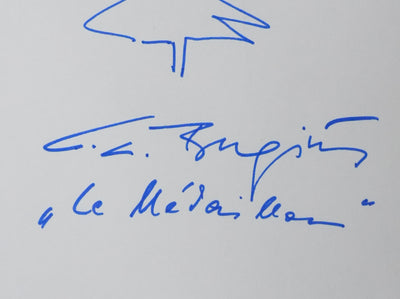 C. C. Bugiüs
„Le Médaillon“